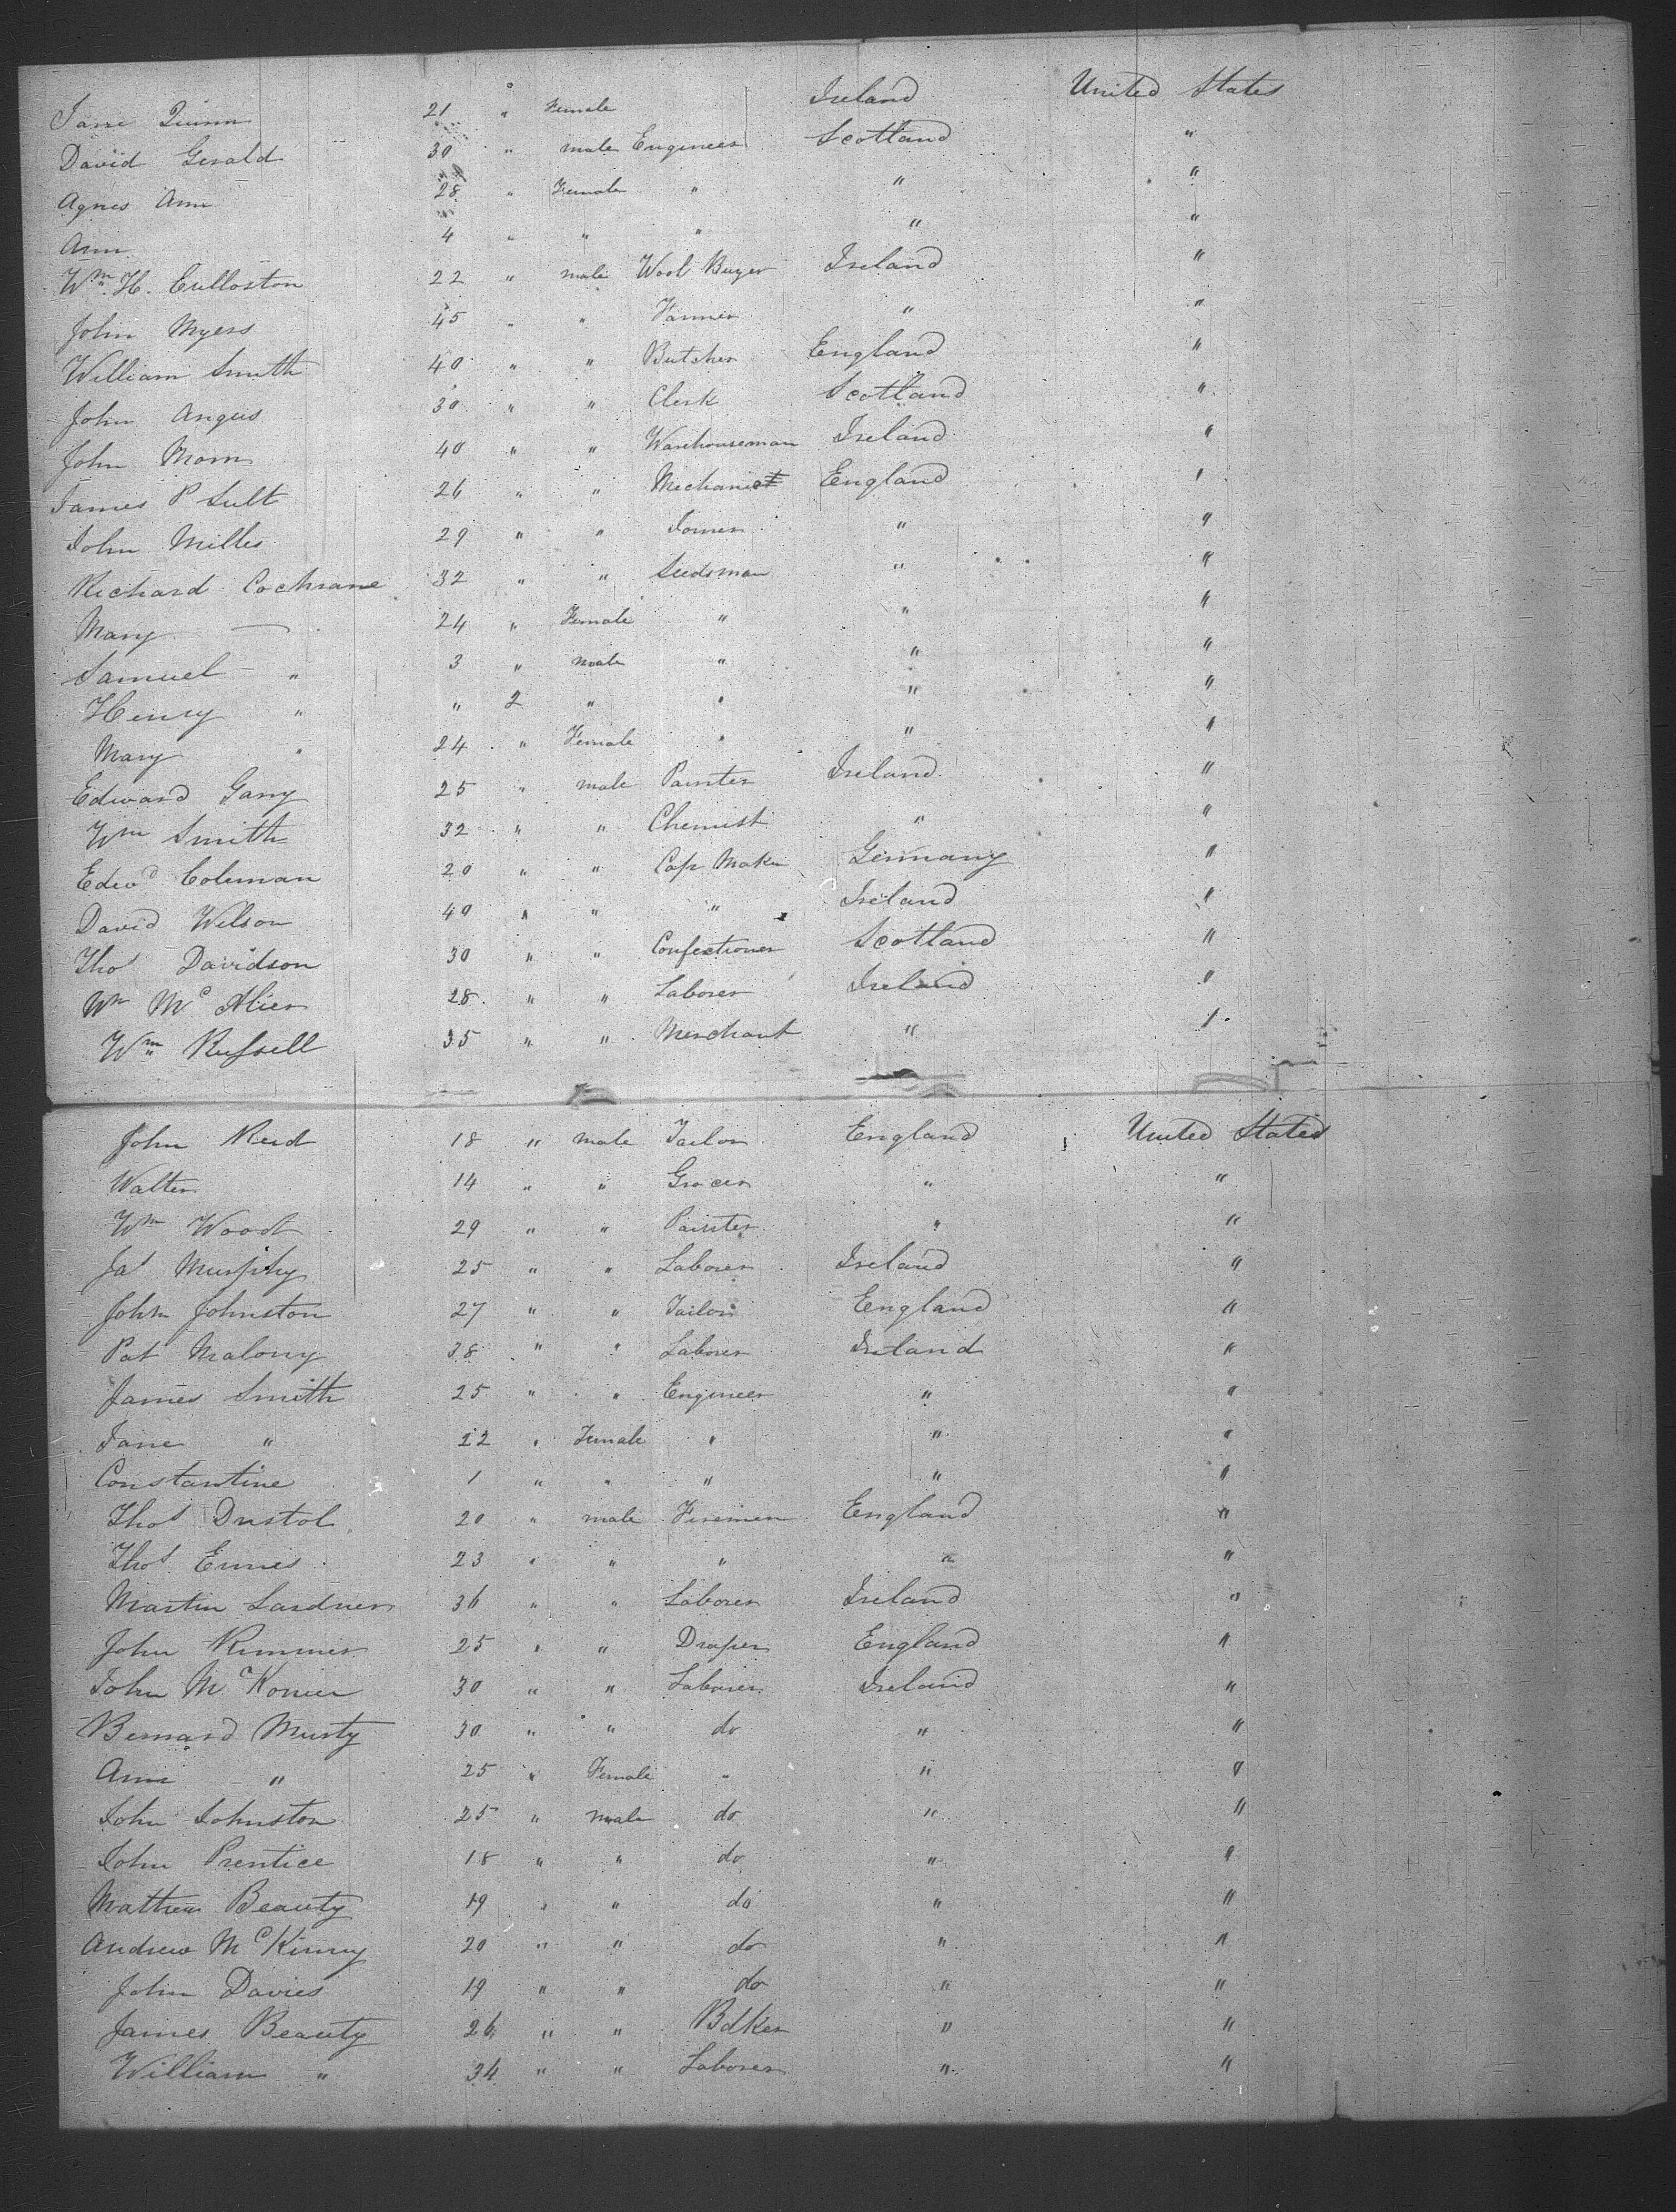 Jane Quinn 21 " Female Ireland United States
David Gerald 30 " male Engineer Scotland "
Agnes Ann 28 " Female " " "
Ann 4 " " " " "
Wm. H. Culloston 22 " male Wool Buyer Ireland "
John Myers 45 " " Farmer " "
William Smith 40 " " Butcher England "
John Angus 30 " " Clerk Scotland "
John Morn 40 " " Warehouseman Ireland "
James P Sult 26 " " Mechanist England "
John Milles 29 " " Joiner " "
Richard Cochrane 32 " " Seedsman " "
Mary — 24 " Female " " "
Samuel — " 3 " male " " "
Henry " " 2 " " " "
Mary " 24 " Female " " "
Edward Gany 25 " male Painter Ireland "
Wm Smith 32 " " Chemist " "
Edwd Coleman 20 " " Cap Maker Germany "
David Wilson 40 " " " Ireland "
Thos Davidson 30 " " Confectioner Scotland "
Wm Mc Alier 28 " " Laborer Ireland "
Wm. Russell 35 " " Merchant " "
John Reid 18 " male Tailor England United States
Walter 14 " " Grocer " "
Wm Wood 29 " " Painter " "
Jas Murphy 25 " " Laborer Ireland "
John Johnston 27 " " Tailor England "
Pat Malony 38 " " Laborer Ireland "
James Smith 25 " " Engineer " "
Jane " 22 " Female " " "
Constantine 1 " " " " "
Thos Dustol 20 " male Firemen England "
Thos Ennes 23 " " " " "
Martin Lardner 36 " " Laborer Ireland "
John Rimmer 25 " " Draper England "
John Mc 30 " " Laborer Ireland "
Bernard Murty 30 " " do " "
Ann " 25 " Female " " "
John Johnston 25 " male do " "
John Prentice 18 " " do " "
Matthew Beauty 19 " " do " "
Andrew McKinny 20 " " do " "
John Davies 19 " " do " "
James Beauty 26 " " Baker " "
William " 34 " " Laborer " "